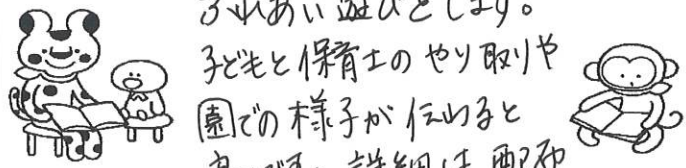 ふれあい遊びをします。
子どもと保育士のやり取りや
園での様子が伝わると
詳細は配布